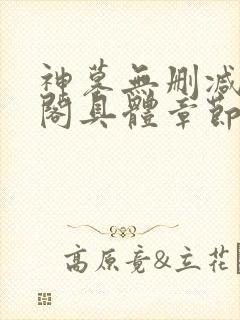 神墓無刪減
閣具體章節
高原竟&立花